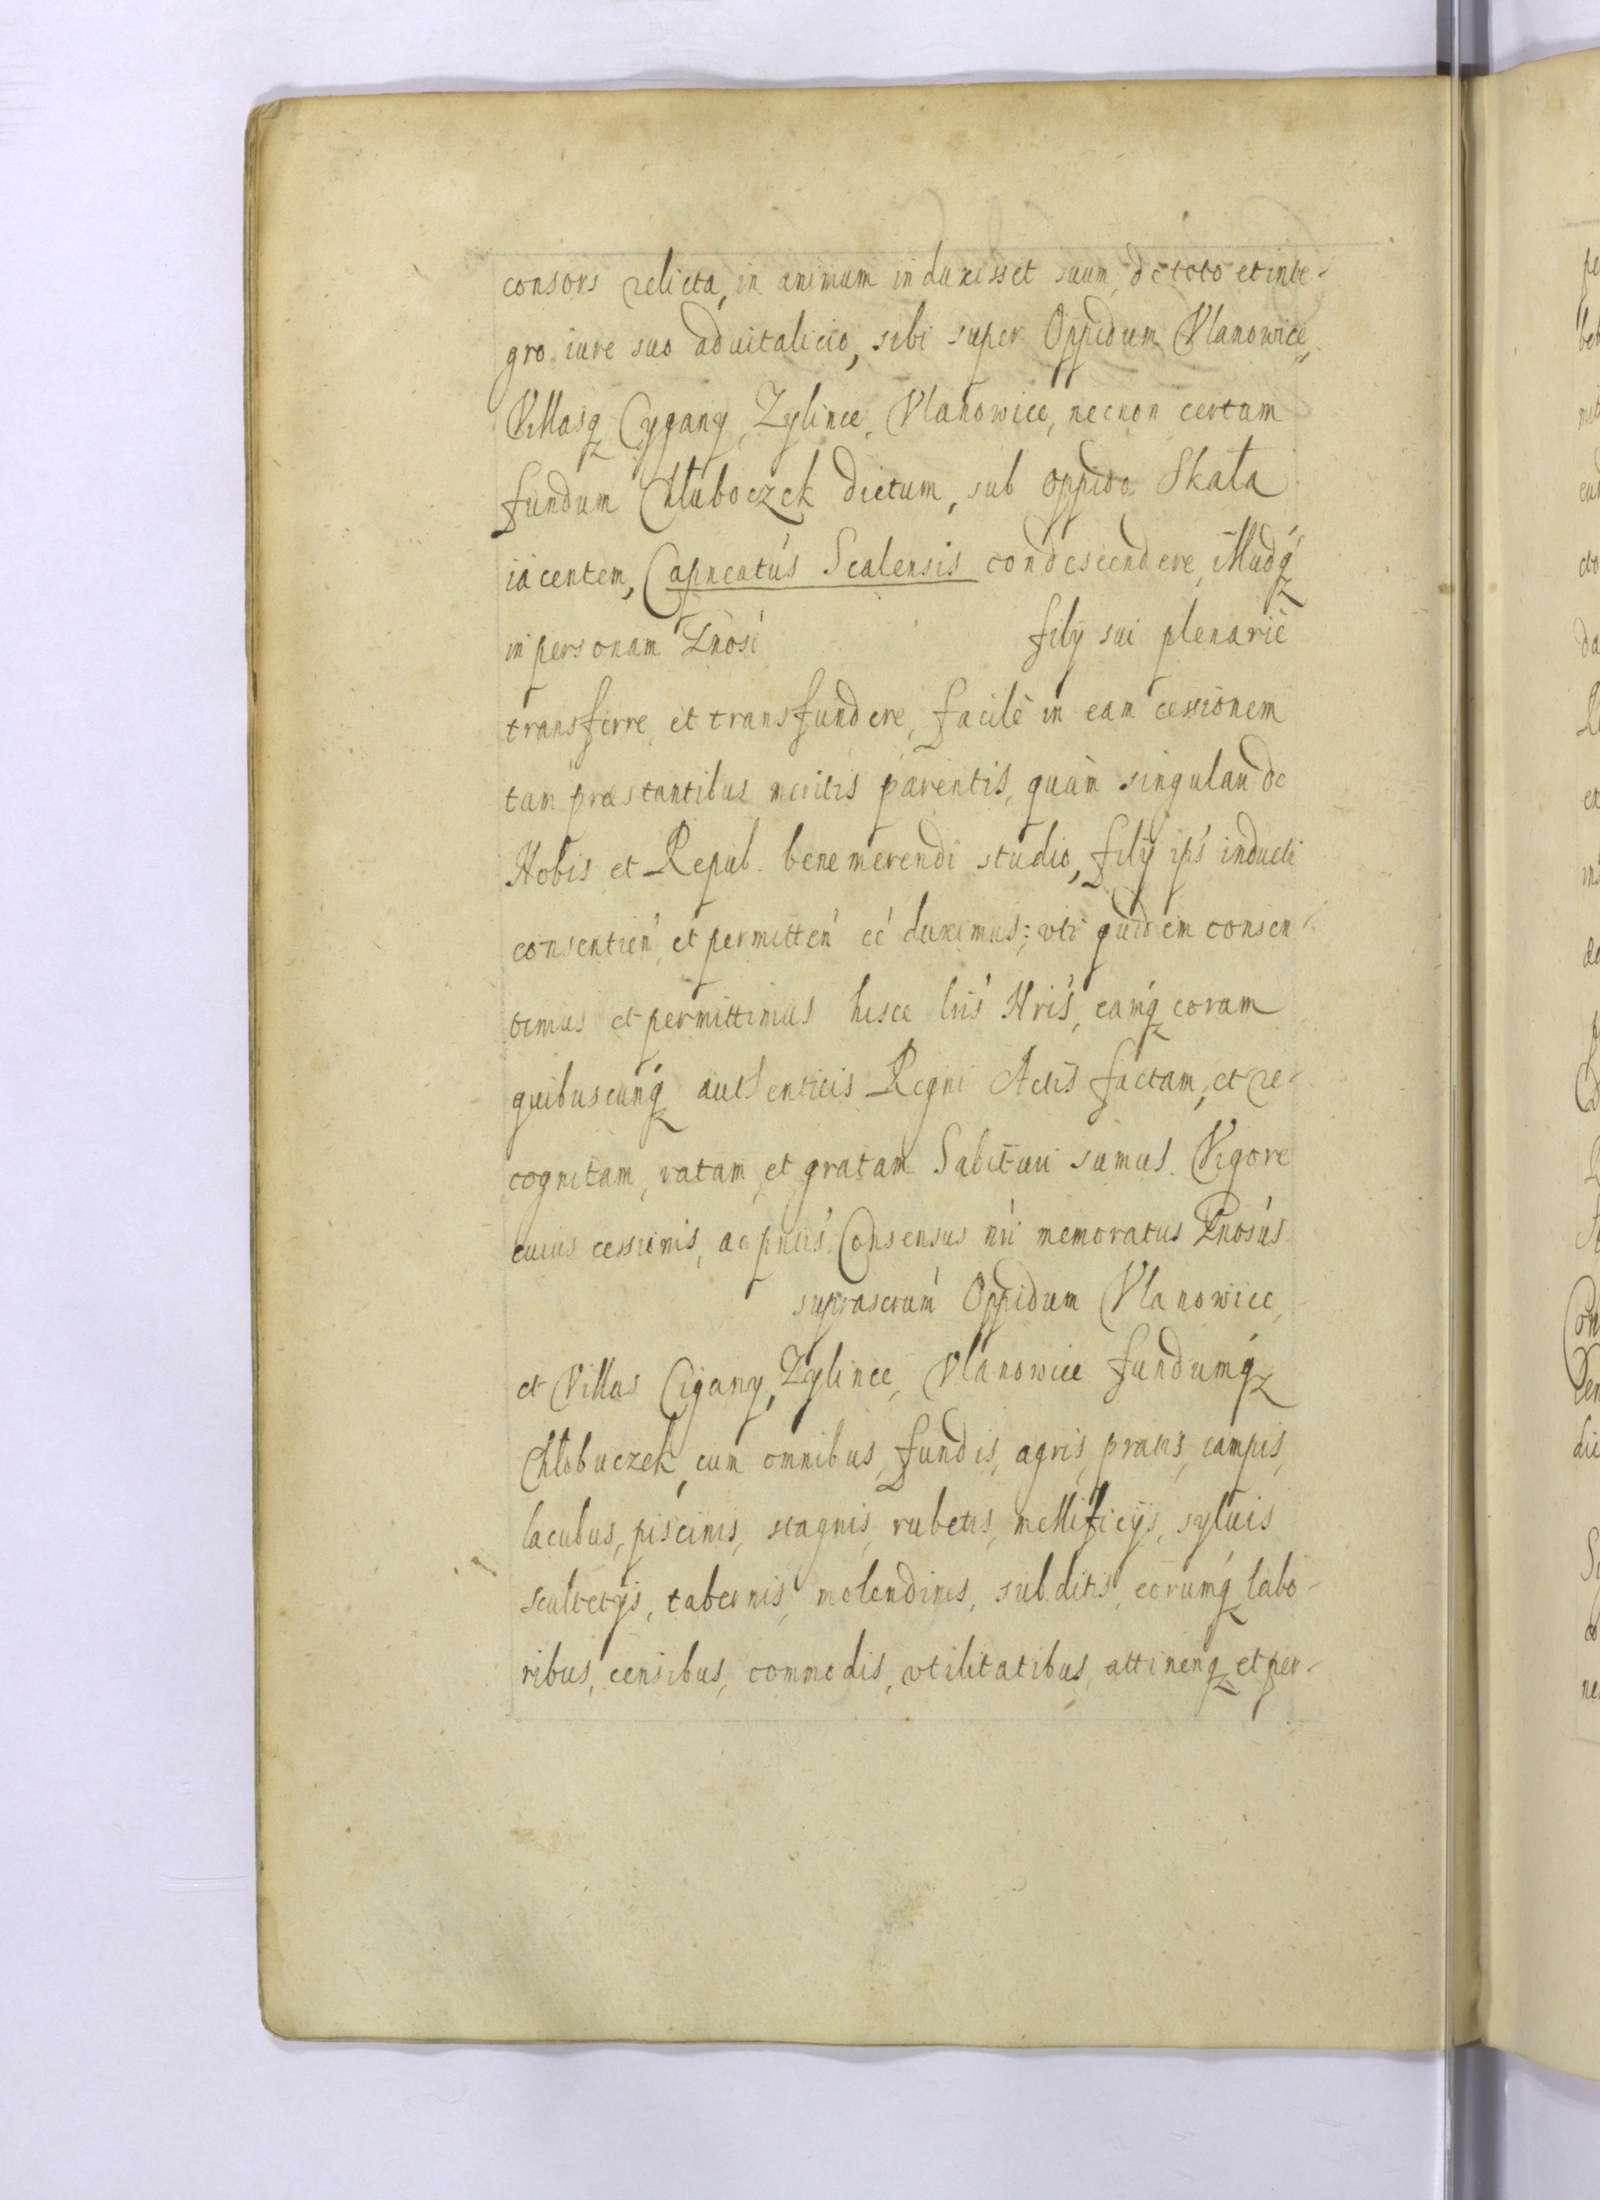 consors relicta, in animum induxisset suum, de toto et inte-
gro iure suo aduitalicio, sibi super Oppidum Vlanowice,
Villasq Cygany, Zylince, Vlanowice, necnon certum
fundum Chluboczek dictum, sub oppido Skała
iacentem, Capneatús Scalensis condescendere, illudq́
in personam Gnosi filÿ sui plenariè
transferre, et transfundere, facilè in eam cessionem
tam præstantibus meritis parentis, quàm singulari de
Nobis et Repub. bene merendi studio, filÿ ipś inducti
consentień et permitteń eé duximus; vti quidem consen-
timus et permittimus hisce lrís Nrís, eamq́ coram
quibuscunq́ authenticis Regni Actis factam, et re-
cognitam, ratam et gratam habituri sumus. Vigore
cuius cessionis, ac pntis Consensus nri memoratus Gnosús
suprascrum Oppidum Vlanowice,
et Villas Cigany, Zylince, Vlanowice fundumq́
Chłobuczek, cum omnibus, fundis, agris, pratis, campis,
lacubus, piscinis, stagnis, rubetis, mellificÿs, syluis
scultetÿs, tabernis, molendinis, subditis, eorumq́ labo-
ribus, censibus, commodis, vtilitatibus, attinenq et per-